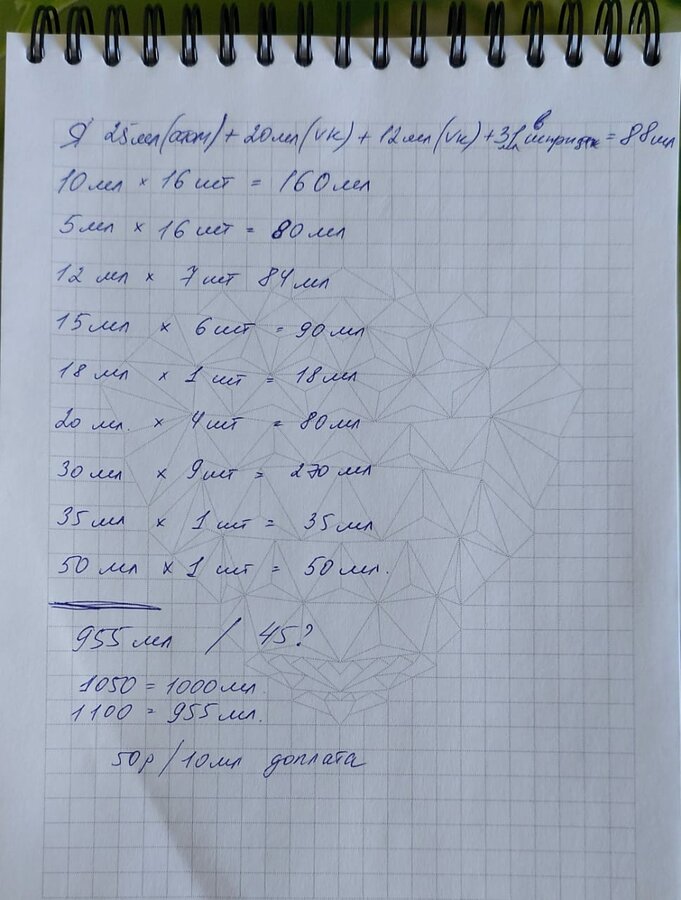 Я 25мл(атом) + 20мл(VK) + 12мл(VK) + 31 в шприцах = 88мл
10мл × 16 шт = 160мл
5мл × 16 шт = 80мл
12 мл × 7 шт 84мл
15мл × 6 шт = 90мл
18 мл × 1 шт = 18мл
20 мл. × 4 шт = 80мл
30 мл × 9 шт = 270 мл
35 мл × 1 шт = 35мл
50 мл × 1 шт = 50мл.
955 мл / 45?
1050 = 1000мл.
1100 = 955 мл.
50р/10мл доплата